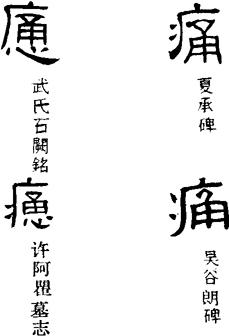 痛
武氏石闕銘
痛
夏承碑
痛
许阿瞿墓志
痛
吴谷朗碑